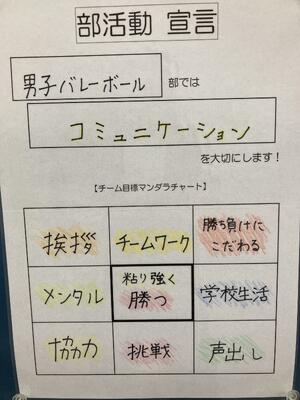 部活動 宣言
男子バレーボール 部では
コミュニケーション
を大切にします!
【チーム目標マンダラチャート】
挨拶 チームワーク 勝ち負けに
こだわる
メンタル 粘り強く
勝つ 学校生活
協力 挑戦 声出し